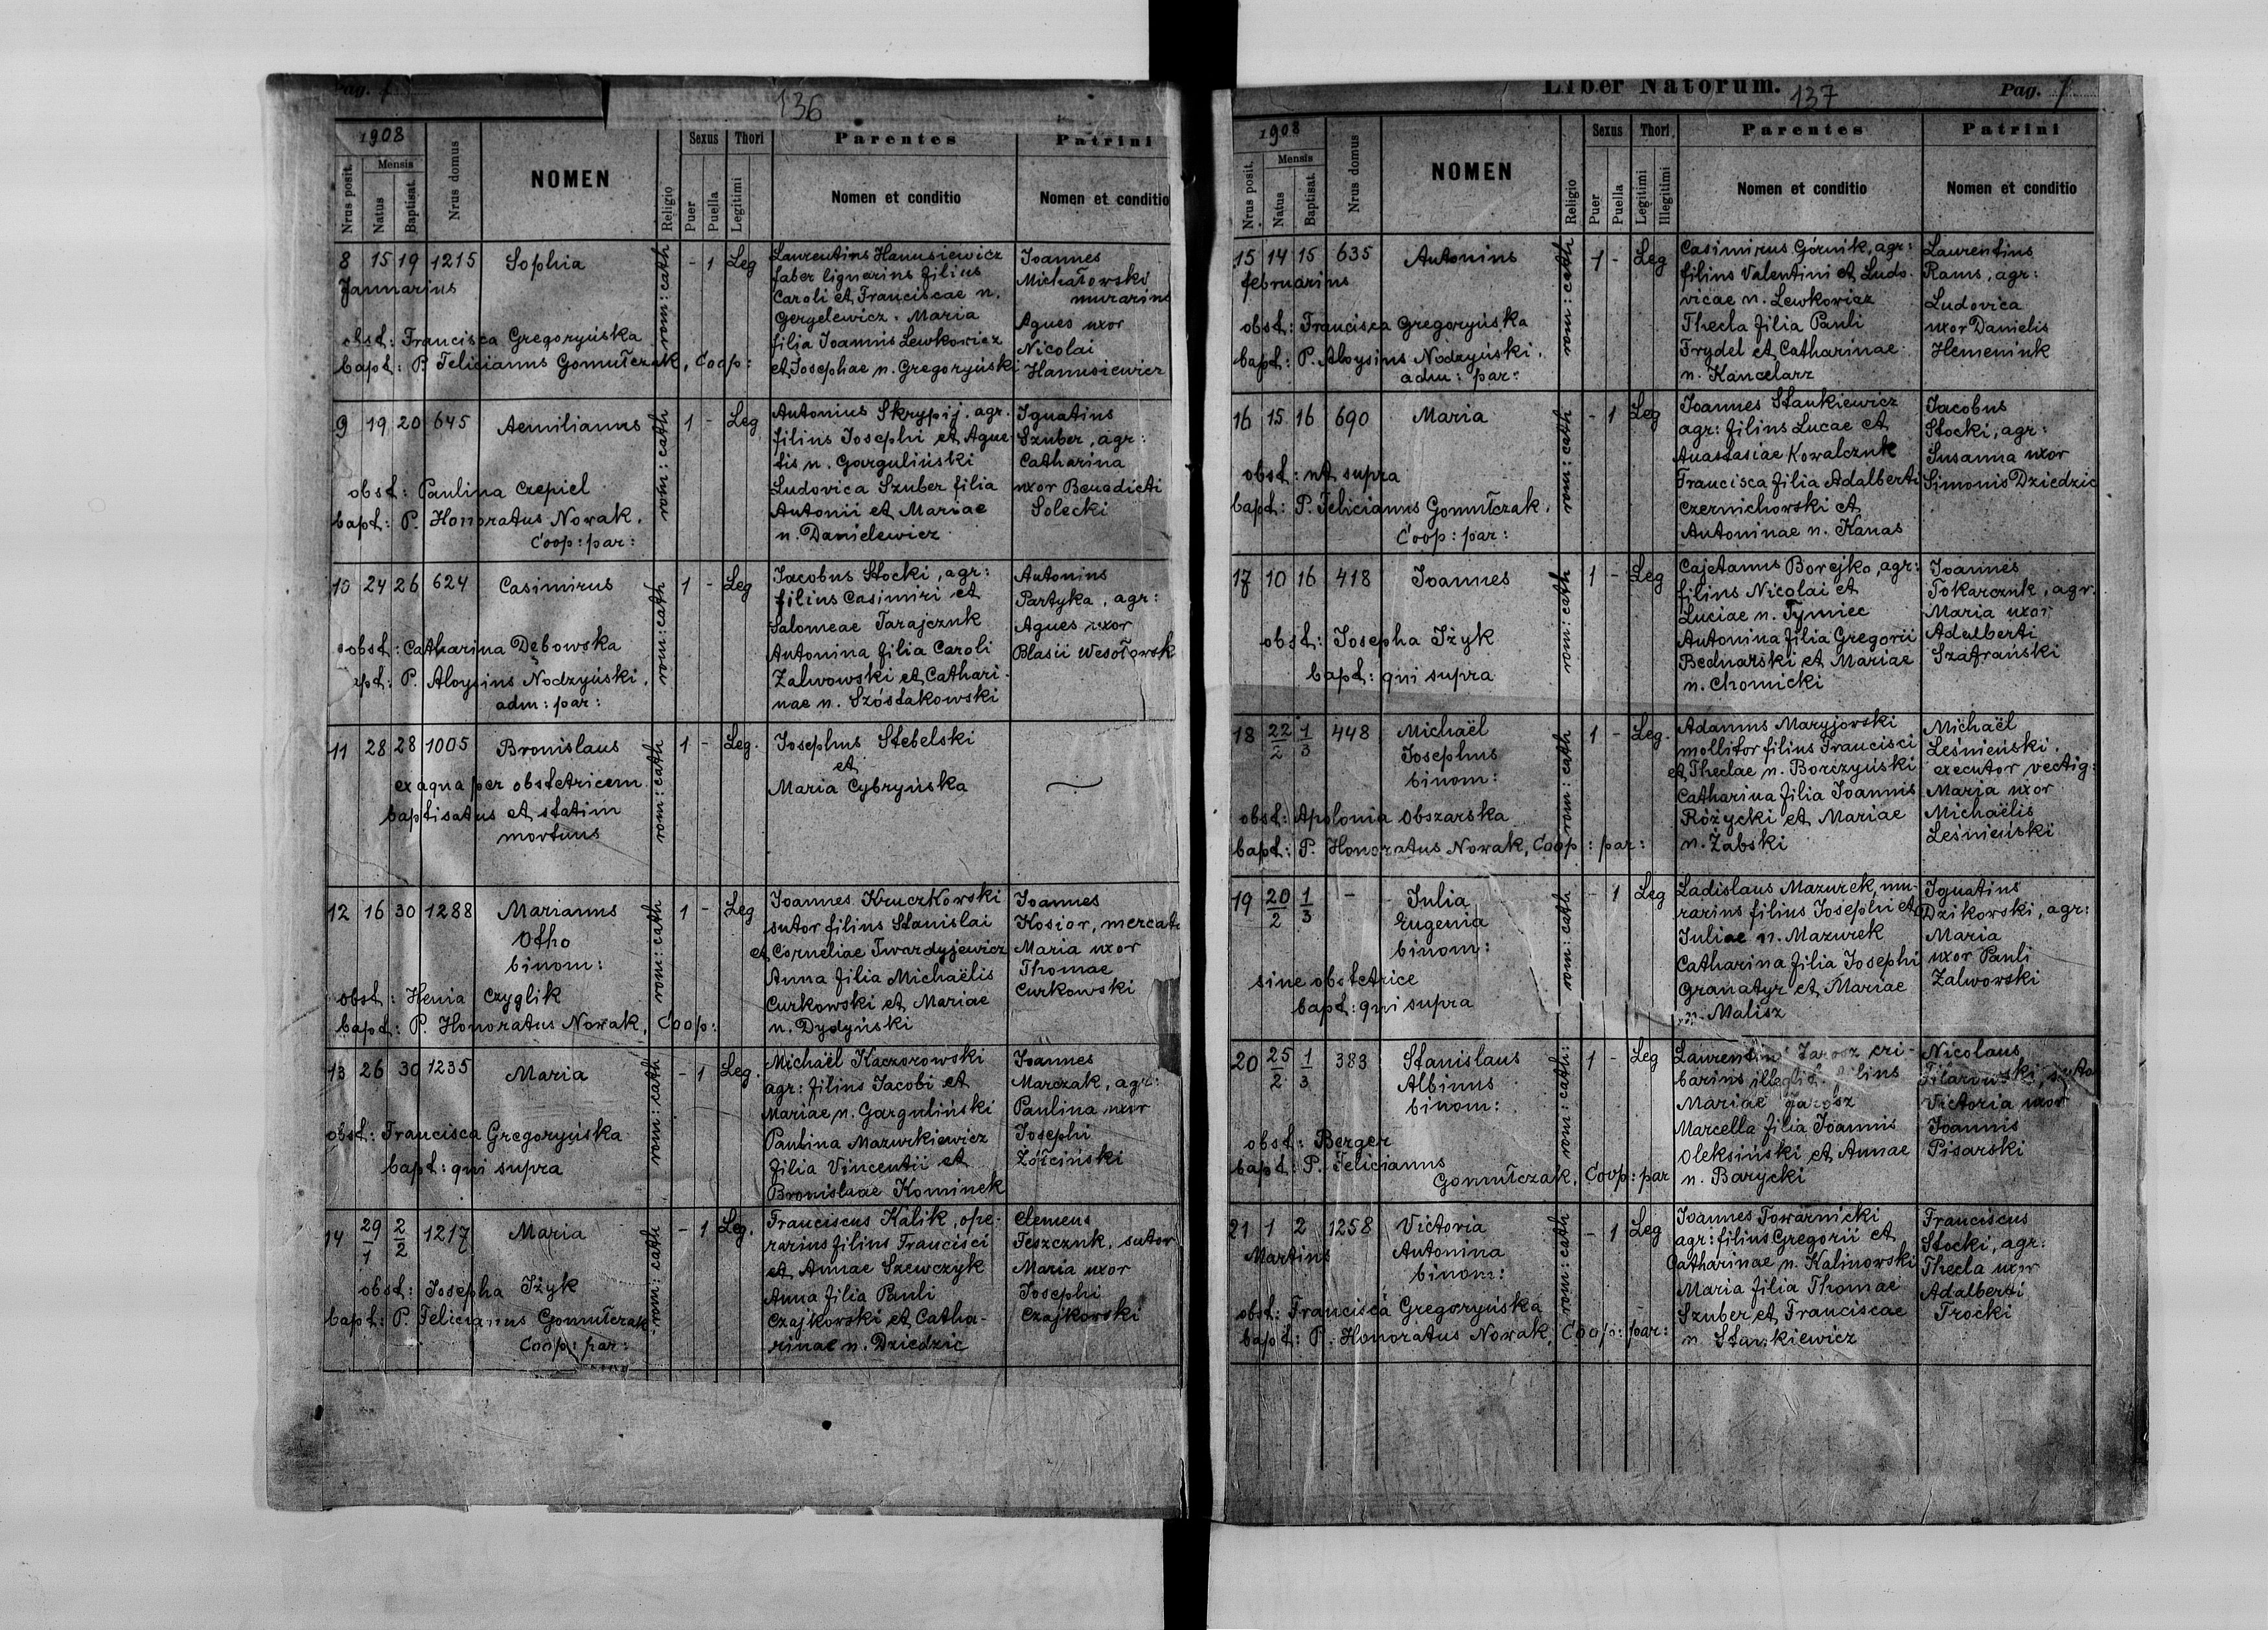 Pag.
136
1908
Nrus posit.
Mensis
Natus
Baptisat.
Nrus domus
NOMEN
Religio
Sexus
Puer
Puella
Thori
Legitimi
Parentes
Nomen et conditio
Patrini
Nomen et conditio
8 15 19 1215 Sophia rom: cath - 1 Leg
Januarius
obst: Francisca Gregoryńska
bapt: P. Felicianus Gomułczak, Coop:
Laurentius Hanusiewicz
faber lignarius filius
Caroli et Franciscae n.
Gergelewicz. Maria
filia Joannis Lewkowicz
et Josephae n. Gregoryński
Joannes
Michałowski
murarius
Agnes uxor
Nicolai
Hanusiewicz
9 19 20 645 Aemilianus rom: cath 1 - Leg
obst: Paulina Czepiel
bapt: P. Honoratus Nowak,
Coop: par:
Antonius Skrypij, agr.
filius Josephi et Agne-
tis n. Garguliński
Ludovica Szuber filia
Antonii et Mariae
n. Danielewicz
Ignatius
Szuber, agr:
Catharina
uxor Benedicti
Solecki
10 24 26 624 Casimirus rom: cath 1 - Leg
obst: Catharina Dębowska
apt: P. Aloysius Nodzyński,
adm: par:
Jacobus Stocki, agr:
filius Casimiri et
Salomeae Tarajczuk
Antonina filia Caroli
Zalwowski et Cathari-
nae n. Szóstakowski
Antonius
Partyka, agr:
Agnes uxor
Blasii Wesołowsk
11 28 28 1005 Bronislaus rom: cath 1 - Leg.
ex aqua per obstetricem
baptisatus et statim
mortuus
Josephus Stebelski
et
Maria Cybryńska
12 16 30 1288 Marianus rom: cath 1 - Leg
Otho
binom:
obst: Henia Czyglik
bapt: P. Honoratus Nowak, Coop:
Joannes Kruczkowski
sutor filius Stanislai
et Corneliae Twardyjewicz
Anna filia Michaëlis
Curkowski et Mariae
n. Dydyński
Joannes
Kosior, mercato
Maria uxor
Thomae
Curkowski
13 26 30 1235 Maria rom: cath - 1 Leg.
obst: Francisca Gregoryńska
bapt: qui supra
Michaël Kaczorowski
agr: filius Jacobi et
Mariae n. Garguliński
Paulina Mazurkiewicz
filia Vincentii et
Bronislaae Kominek
Joannes
Marczak, agr:
Paulina uxor
Josephi
Żółciński
14 29/1 2/2 1217 Maria rom: cath - 1 Leg.
obst: Josepha Iżyk
bapt: P. Felicianus Gomułczak
Coop: par:
Franciscus Kalik, ope-
rarius filius Francisci
et Annae Szewczyk
Anna filia Pauli
Czajkowski et Catha-
rinae n. Dziedzic
Clemens
Teszczuk, sutor
Maria uxor
Josephi
Czajkowski
Liber Natorum.
137
Pag. 7
1908
Nrus posit.
Mensis
Natus
Baptisat.
Nrus domus
NOMEN
Religio
Sexus
Puer
Puella
Thori
Legitimi
Illegitimi
Parentes
Nomen et conditio
Patrini
Nomen et conditio
15 14 15 635 Antonius rom: cath 1 - Leg
februarius
obst: Francisca Gregoryńska
bapt: P. Aloysius Nodzyński,
adm: par:
Casimirus Górnik, agr:
filius Valentini et Ludo-
vicae n. Lewkowicz
Thecla filia Pauli
Frydel et Catharinae
n. Kancelarz
Laurentius
Rams, agr:
Ludovica
uxor Danielis
Hemeniuk
16 15 16 690 Maria rom: cath - 1 Leg
obst: ut supra
bapt: P. Felicianus Gomułczak,
Coop: par:
Joannes Stankiewicz
agr: filius Lucae et
Anastasiae Kowalczuk
Francisca filia Adalberti
Czernichowski et
Antoninae n. Kanas
Jacobus
Stocki, agr:
Susanna uxor
Simonis Dziedzic
17 10 16 418 Joannes rom: cath 1 - Leg
obst: Josepha Iżyk
bapt: qui supra
Cajetanus Borejko, agr:
filius Nicolai et
Luciae n. Tymiec
Antonina filia Gregorii
Bednarski et Mariae
n. Chomicki
Joannes
Tokarczuk, agr.
Maria uxor
Adalberti
Szafrański
18 22/2 1/3 448 Michaël rom: cath 1 - Leg.
Josephus
binom:
obst: Apolonia Obszarska
bapt: P. Honoratus Nowak, Coop: par:
Adamus Maryjowski
mollitor filius Francisci
et Theclae n. Borczyński
Catharina filia Joannis
Różycki et Mariae
n. Żabski
Michaël
Leśnieński,
executor vectig:
Maria uxor
Michaëlis
Leśnieński
19 20/2 1/3 - Julia rom: cath - 1 Leg
Eugenia
binom:
sine obstetrice
bapt: qui supra
Ladislaus Mazurek, mu-
rarius filius Josephi et
Juliae n. Mazurek
Catharina filia Josephi
Granatyr et Mariae
n. Malisz
Ignatius
Dzikowski, agr:
Maria
uxor Pauli
Zalwowski
20 25/2 1/3 383 Stanislaus rom: cath: 1 - Leg
Albinus
binom:
obst: Berger
bapt: P. Felicianus
Gomułczak, Coop: par
Jarosz cri-
barius filius
Mariae Jarosz
Marcella filia Joannis
Oleksiński et Annae
n. Barycki
Nicolaus
Victoria uxor
Joannis
Pisarski
21 1 2 1258 Victoria rom: cath - 1 Leg
Martius Antonina
binom:
obst: Francisca Gregoryńska
bapt: P. Honoratus Nowak, Coop: par:
Joannes Towarnicki
agr: filius Gregorii et
Catharinae n. Kalinowski
Maria filia Thomae
Szuber et Franciscae
n. Stankiewicz
Franciscus
Stocki, agr:
Thecla uxor
Adalberti
Trocki